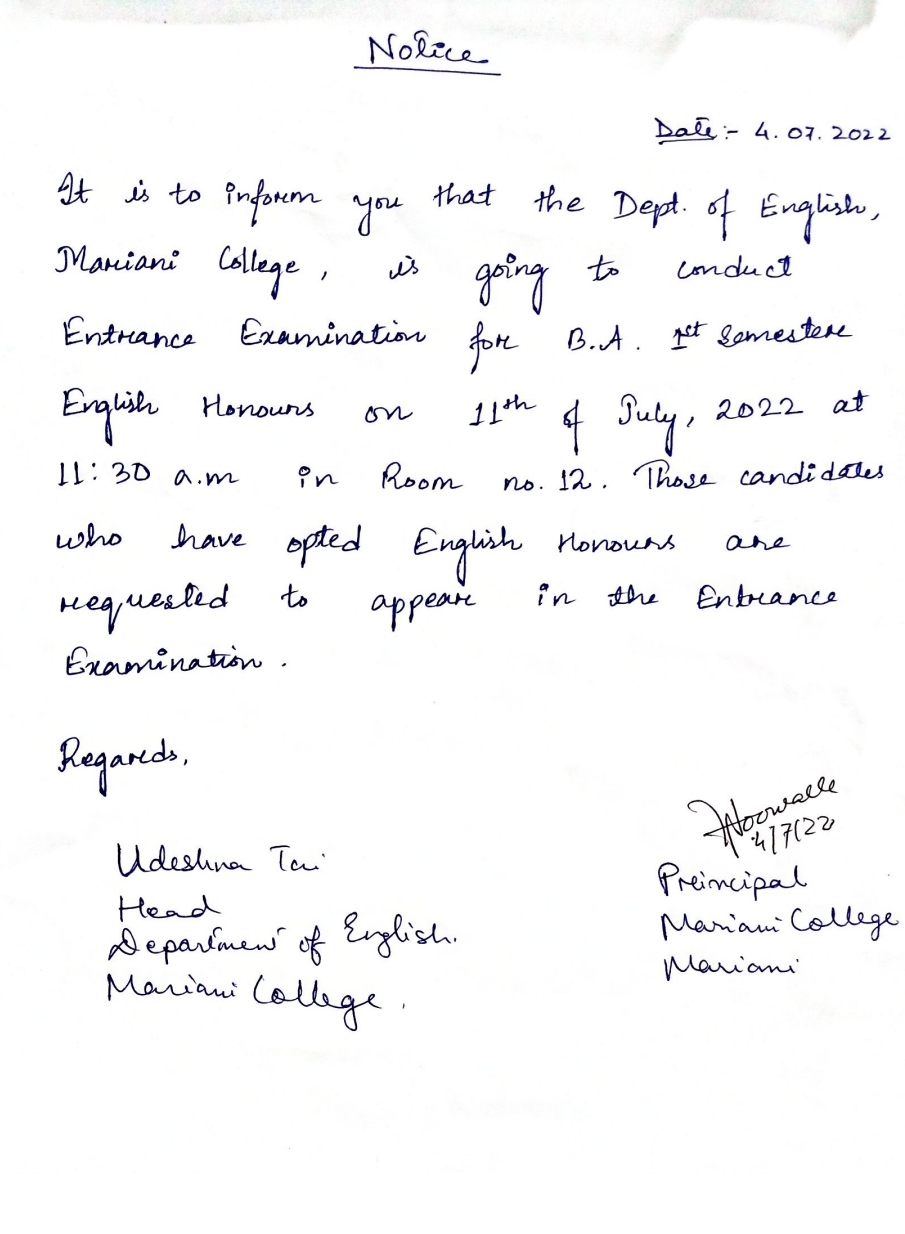 Notice
Date :- 4.07.2022
It is to inform you that the Dept. of English,
Mariani College, is going to conduct
Entrance Examination for B.A. 1st Semester
English Honours on 11th of July, 2022 at
11:30 a.m in Room no. 12. Those candidates
who have opted English Honours are
requested to appear in the Entrance
Examination.
Regards,
4/7/22
Udeshna
Head
Department of English.
Mariani College.
Principal
Mariani College
Mariani